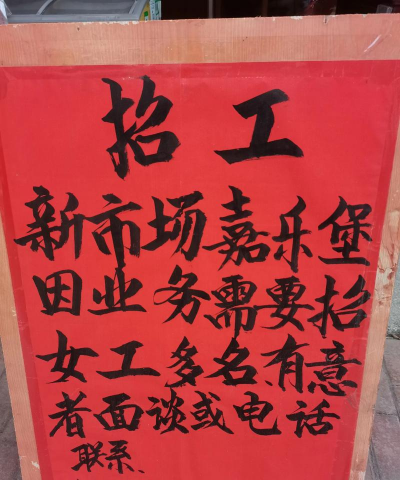 招工
新市场嘉乐堡
因业务需要招
女工多名有意
者面谈或电话
联系、